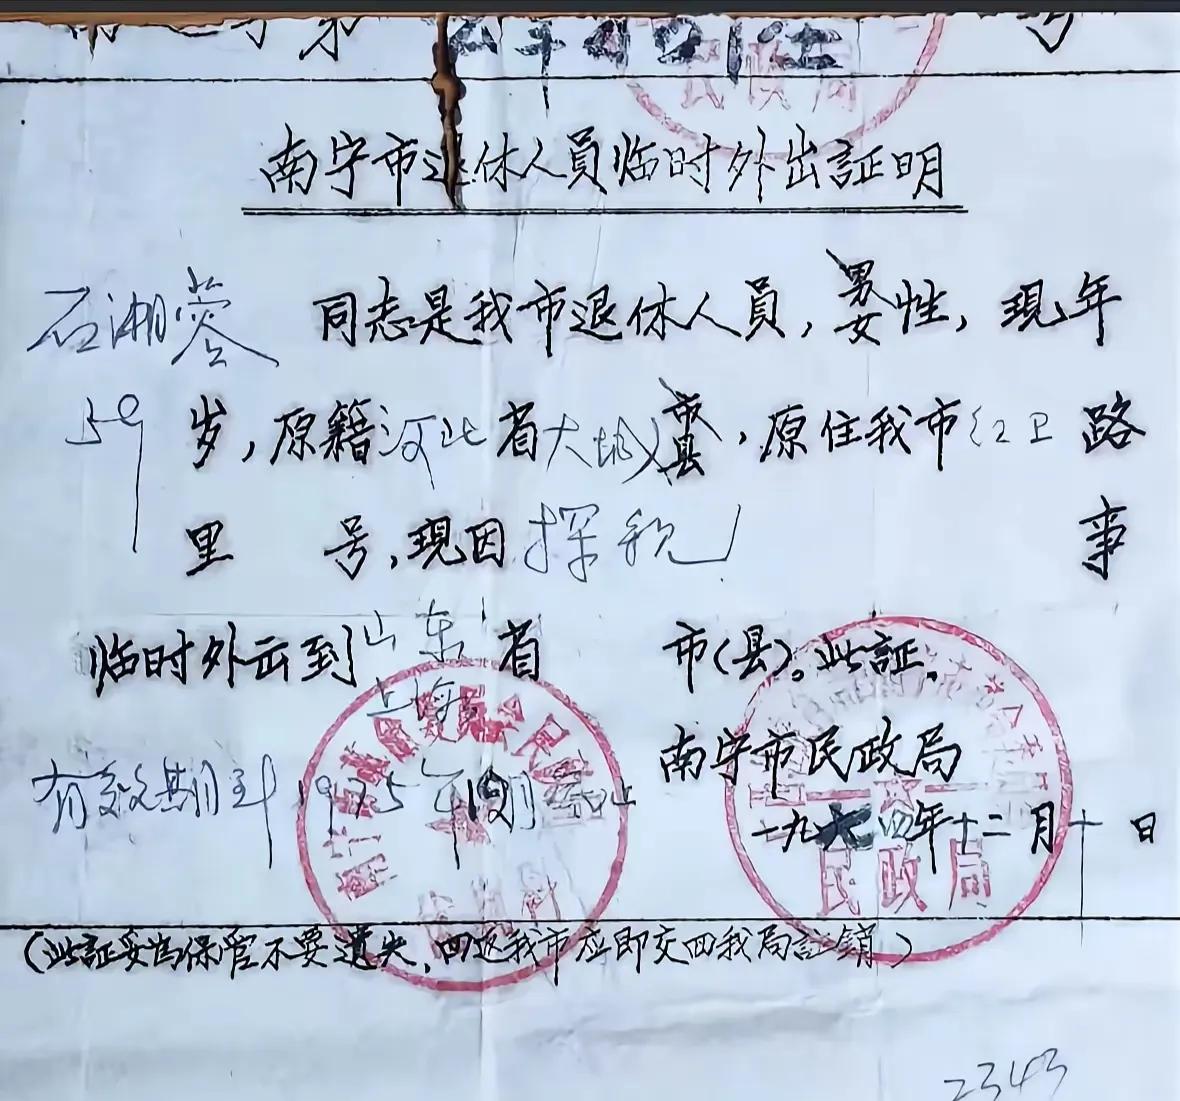 南宁市退休人员临时外出証明
石湘蓉 同志是我市退休人員，男女性，現年
59岁，原籍河北省大城市县，原住我市红卫路
里 号，現因探親 事
临时外出到山东省 市(县)。此証.
上海
南宁市民政局
有效期到1975年 月 止
一九七四年十二月十日
民政局
(此証妥为保管不要遗失，回返我市应即交回我局註銷)
2343